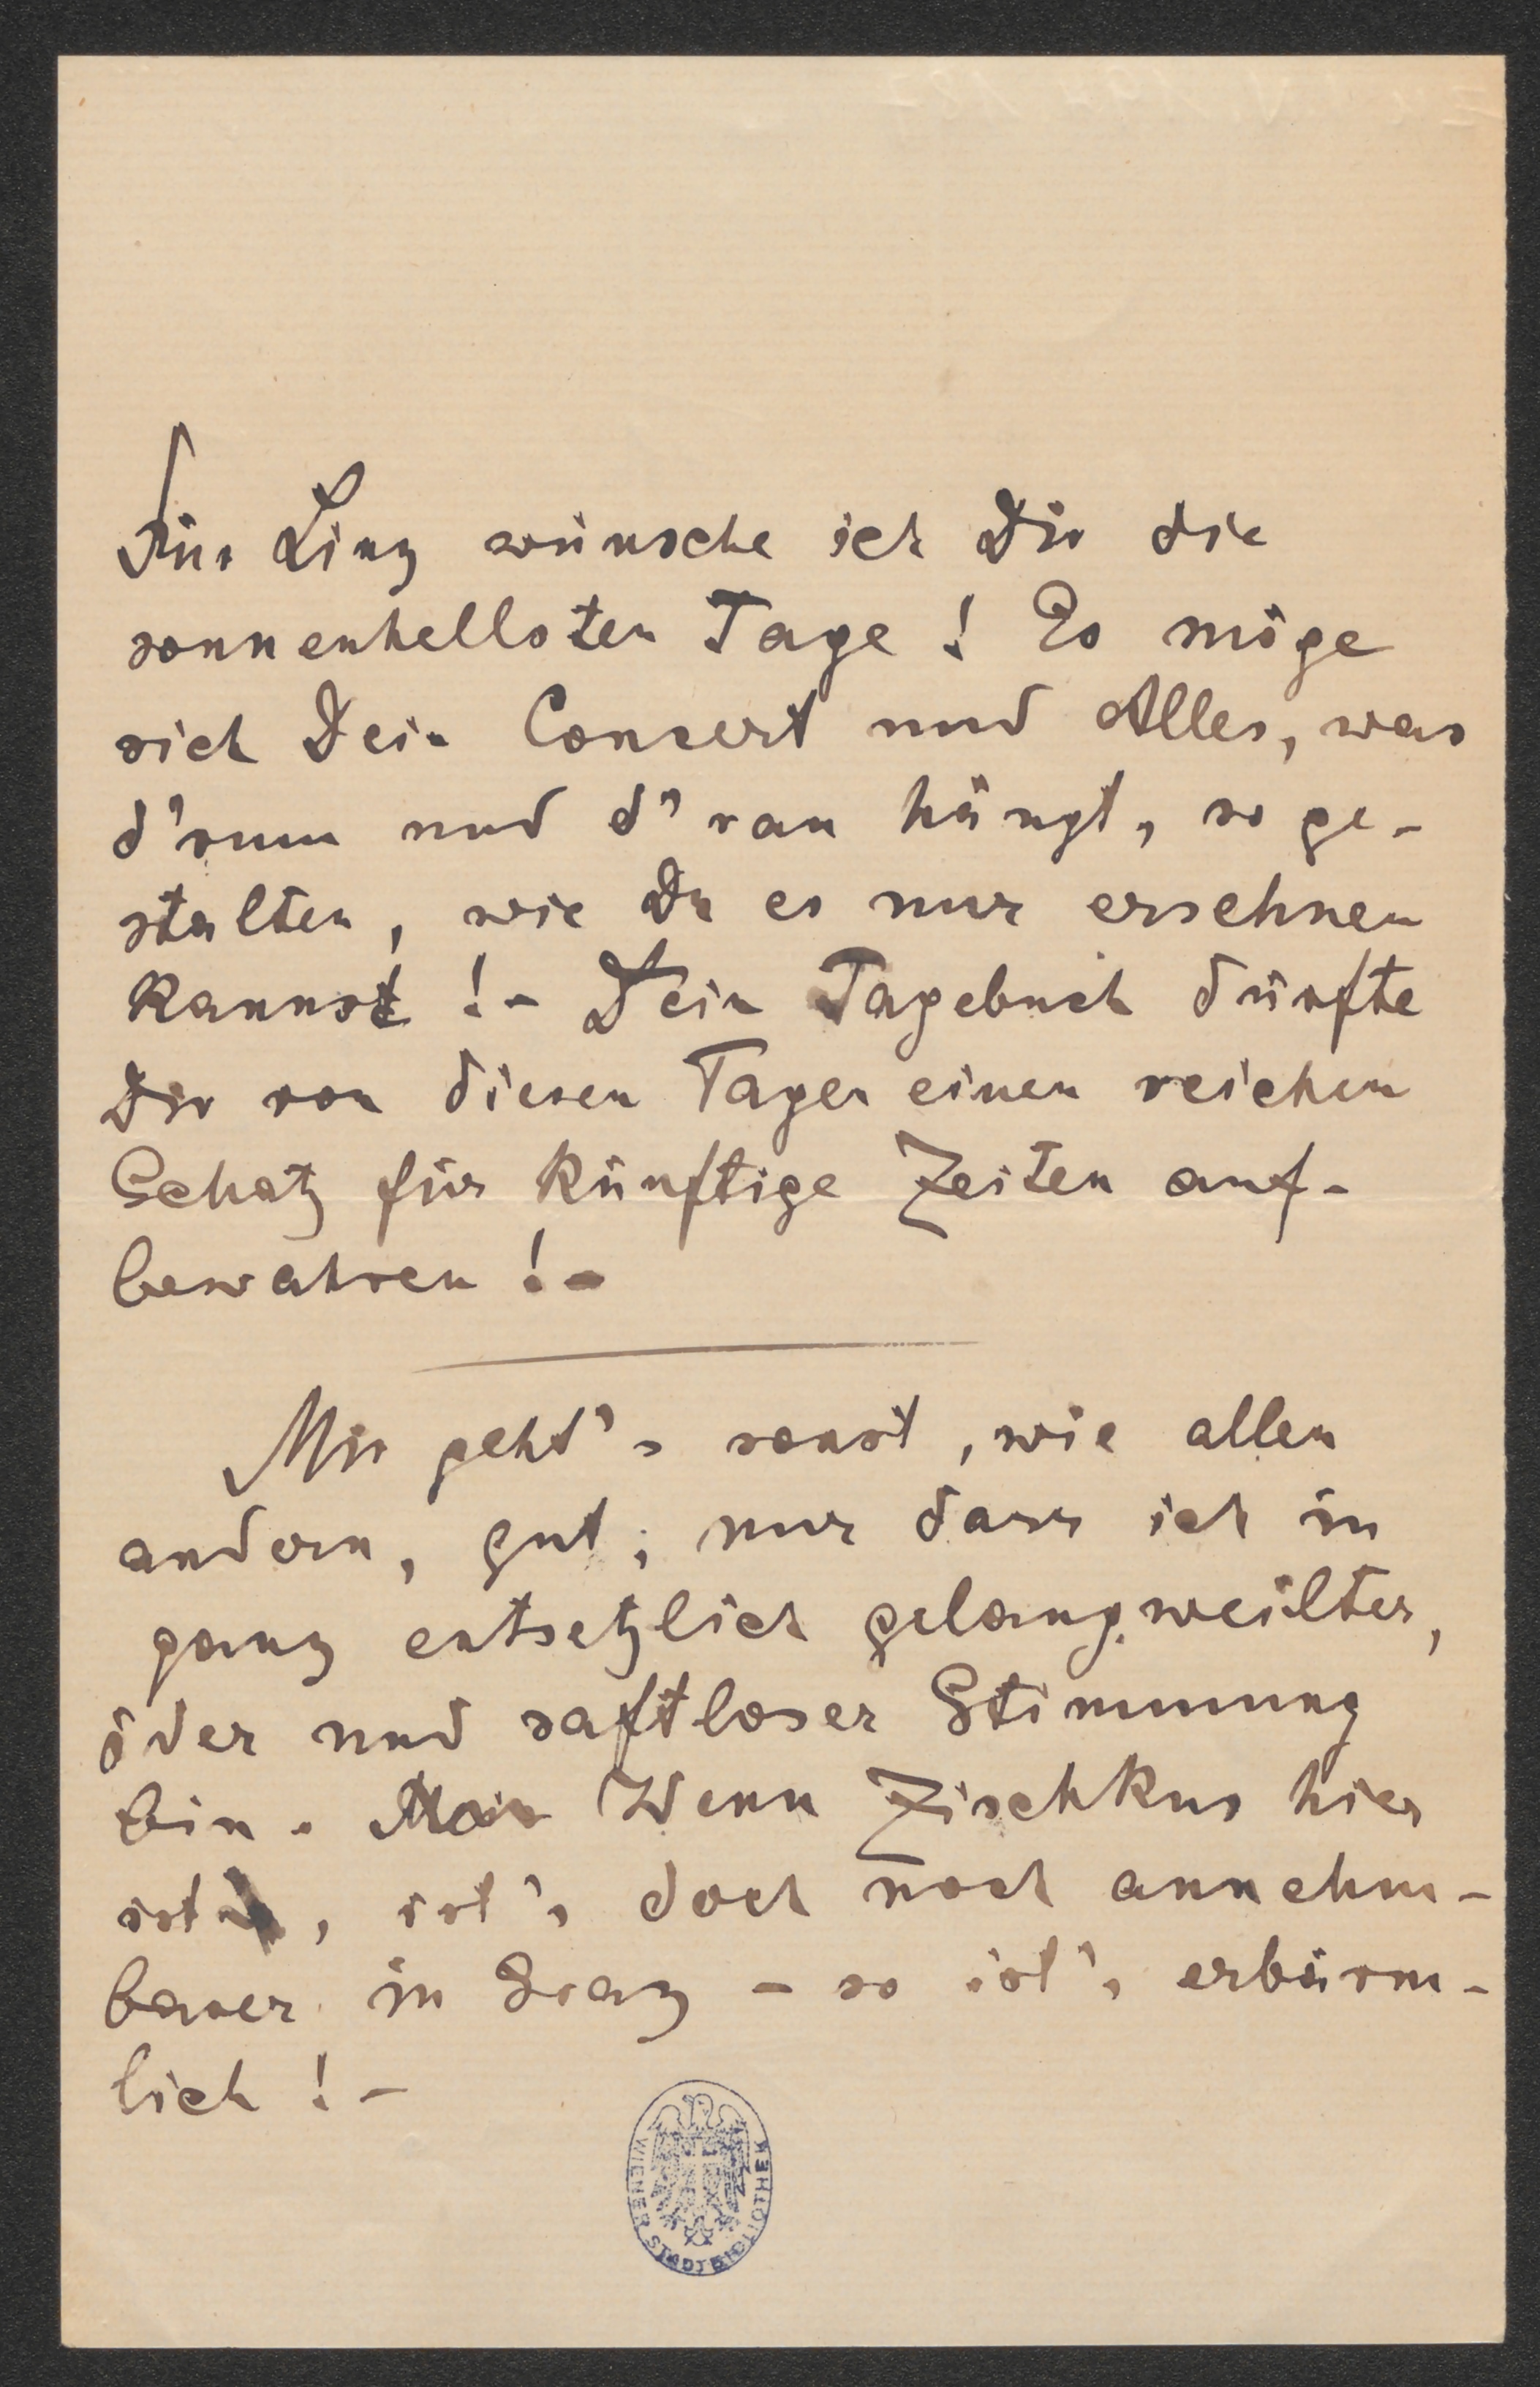 Für Linz wünsche ich Dir die
sonnenhellsten Tage! Es möge
sich Dein Concert und Alles, was
d'rum und d'ran hängt, so ge-
stalten, wie Du es nur ersehnen
kannst!- Dein Tagebuch dürfte
Dir von diesen Tagen einen reichen
Schatz für künftige Zeiten auf-
bewahren!-
Mir geht's sonst, wie allen
andern, gut; nur dass ich in
ganz entsetzlich gelangweilter,
öder und saftloser Stimmung
bin. Wenn Zischkus hier
ist, ist's doch noch annehm-
barer in Graz - so ist's erbärm-
lich!-
WIENER STADTBIBLIOTHEK